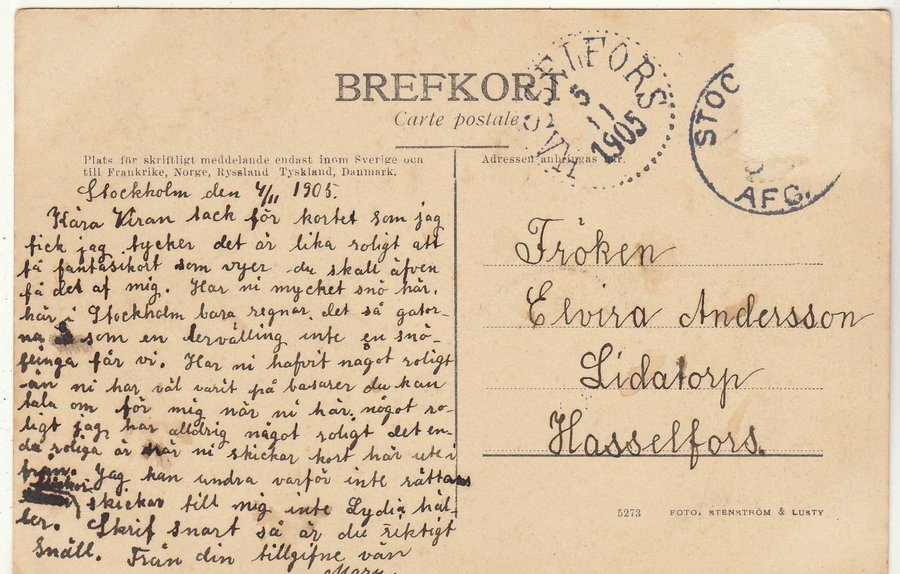 BREFKORT
Carte postale
HASSELFORS
5
11
1905
STOC
AFG.
Plats för skriftligt meddelande endast inom Sverige och
till Frankrike, Norge, Ryssland Tyskland, Danmark.
Adressen anbringas här.
Stockholm den 4/11 1905.
Kära Viran tack för kortet som jag
fick jag tycker det är lika roligt att
få fantasikort som vyer du skall äfven
få det af mig. Har ni mycket snö här,
här i Stockholm bara regnar det så gator-
na som en välling inte en snö-
flinga får vi. Har ni hafvit något roligt
än ni har väl varit på basarer du kan
tala om för mig när ni här något ro-
ligt jag har alldrig något roligt det en-
da roliga är när ni skickar kort här ute i
från. Jag kan undra varför inte
skickar till mig inte Lydia häl-
ler. Skrif snart så är du riktigt
snäll. Från din tillgifne vän
Mary.
Fröken
Elvira Andersson
Lidatorp
Hasselfors.
5273 FOTO. STENSTRÖM & LUSTY